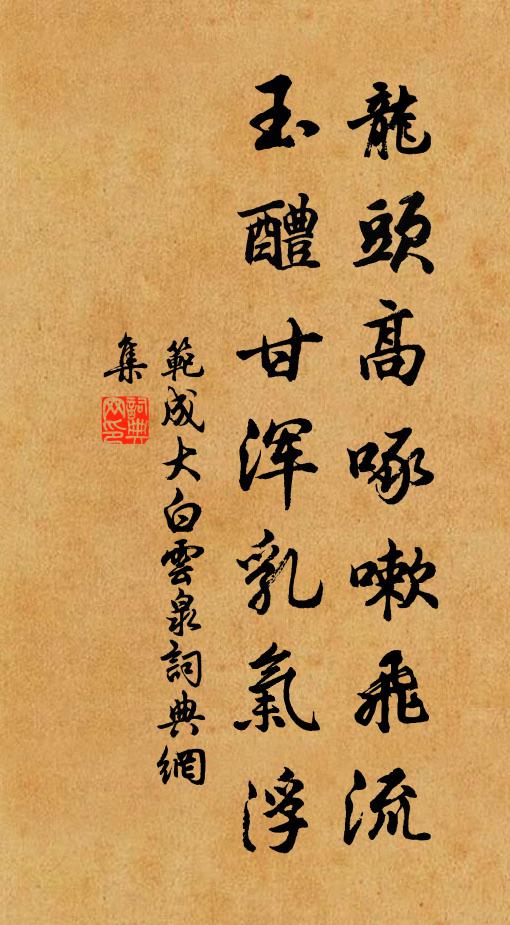 龍頭高啄嗽飛流
玉醴甘浑乳氣浮
範成大白雲泉詞典網
集
詞典网印